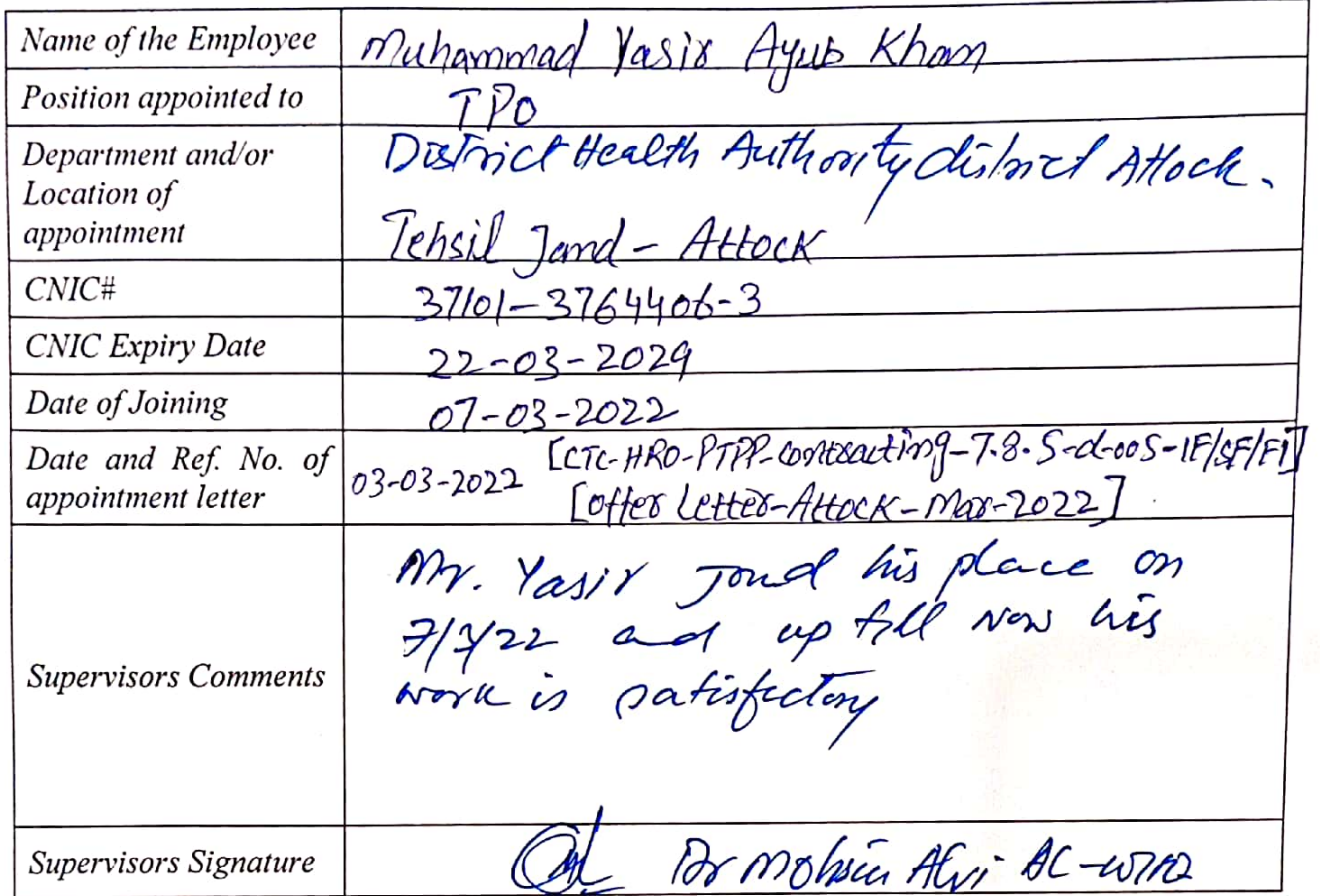 Name of the Employee Muhammad Yasir Ayub Khan
Position appointed to TPO
Department and/or
Location of
appointment
District Health Authority district Attock.
Tehsil Jand - Attock
CNIC# 37101-3764406-3
CNIC Expiry Date 22-03-2029
Date of Joining 07-03-2022
Date and Ref. No. of
appointment letter
03-03-2022 [CTC-HRO-PTPP-Contracting-7.8.5-d-005-IF/SF/FI]
[Offer Letter-Attock-Mar-2022]
Supervisors Comments
Mr. Yasir Joind his place on
7/3/22 and up till now his
work is satisfectory
Supervisors Signature Dr Mohsin Alvi AC-